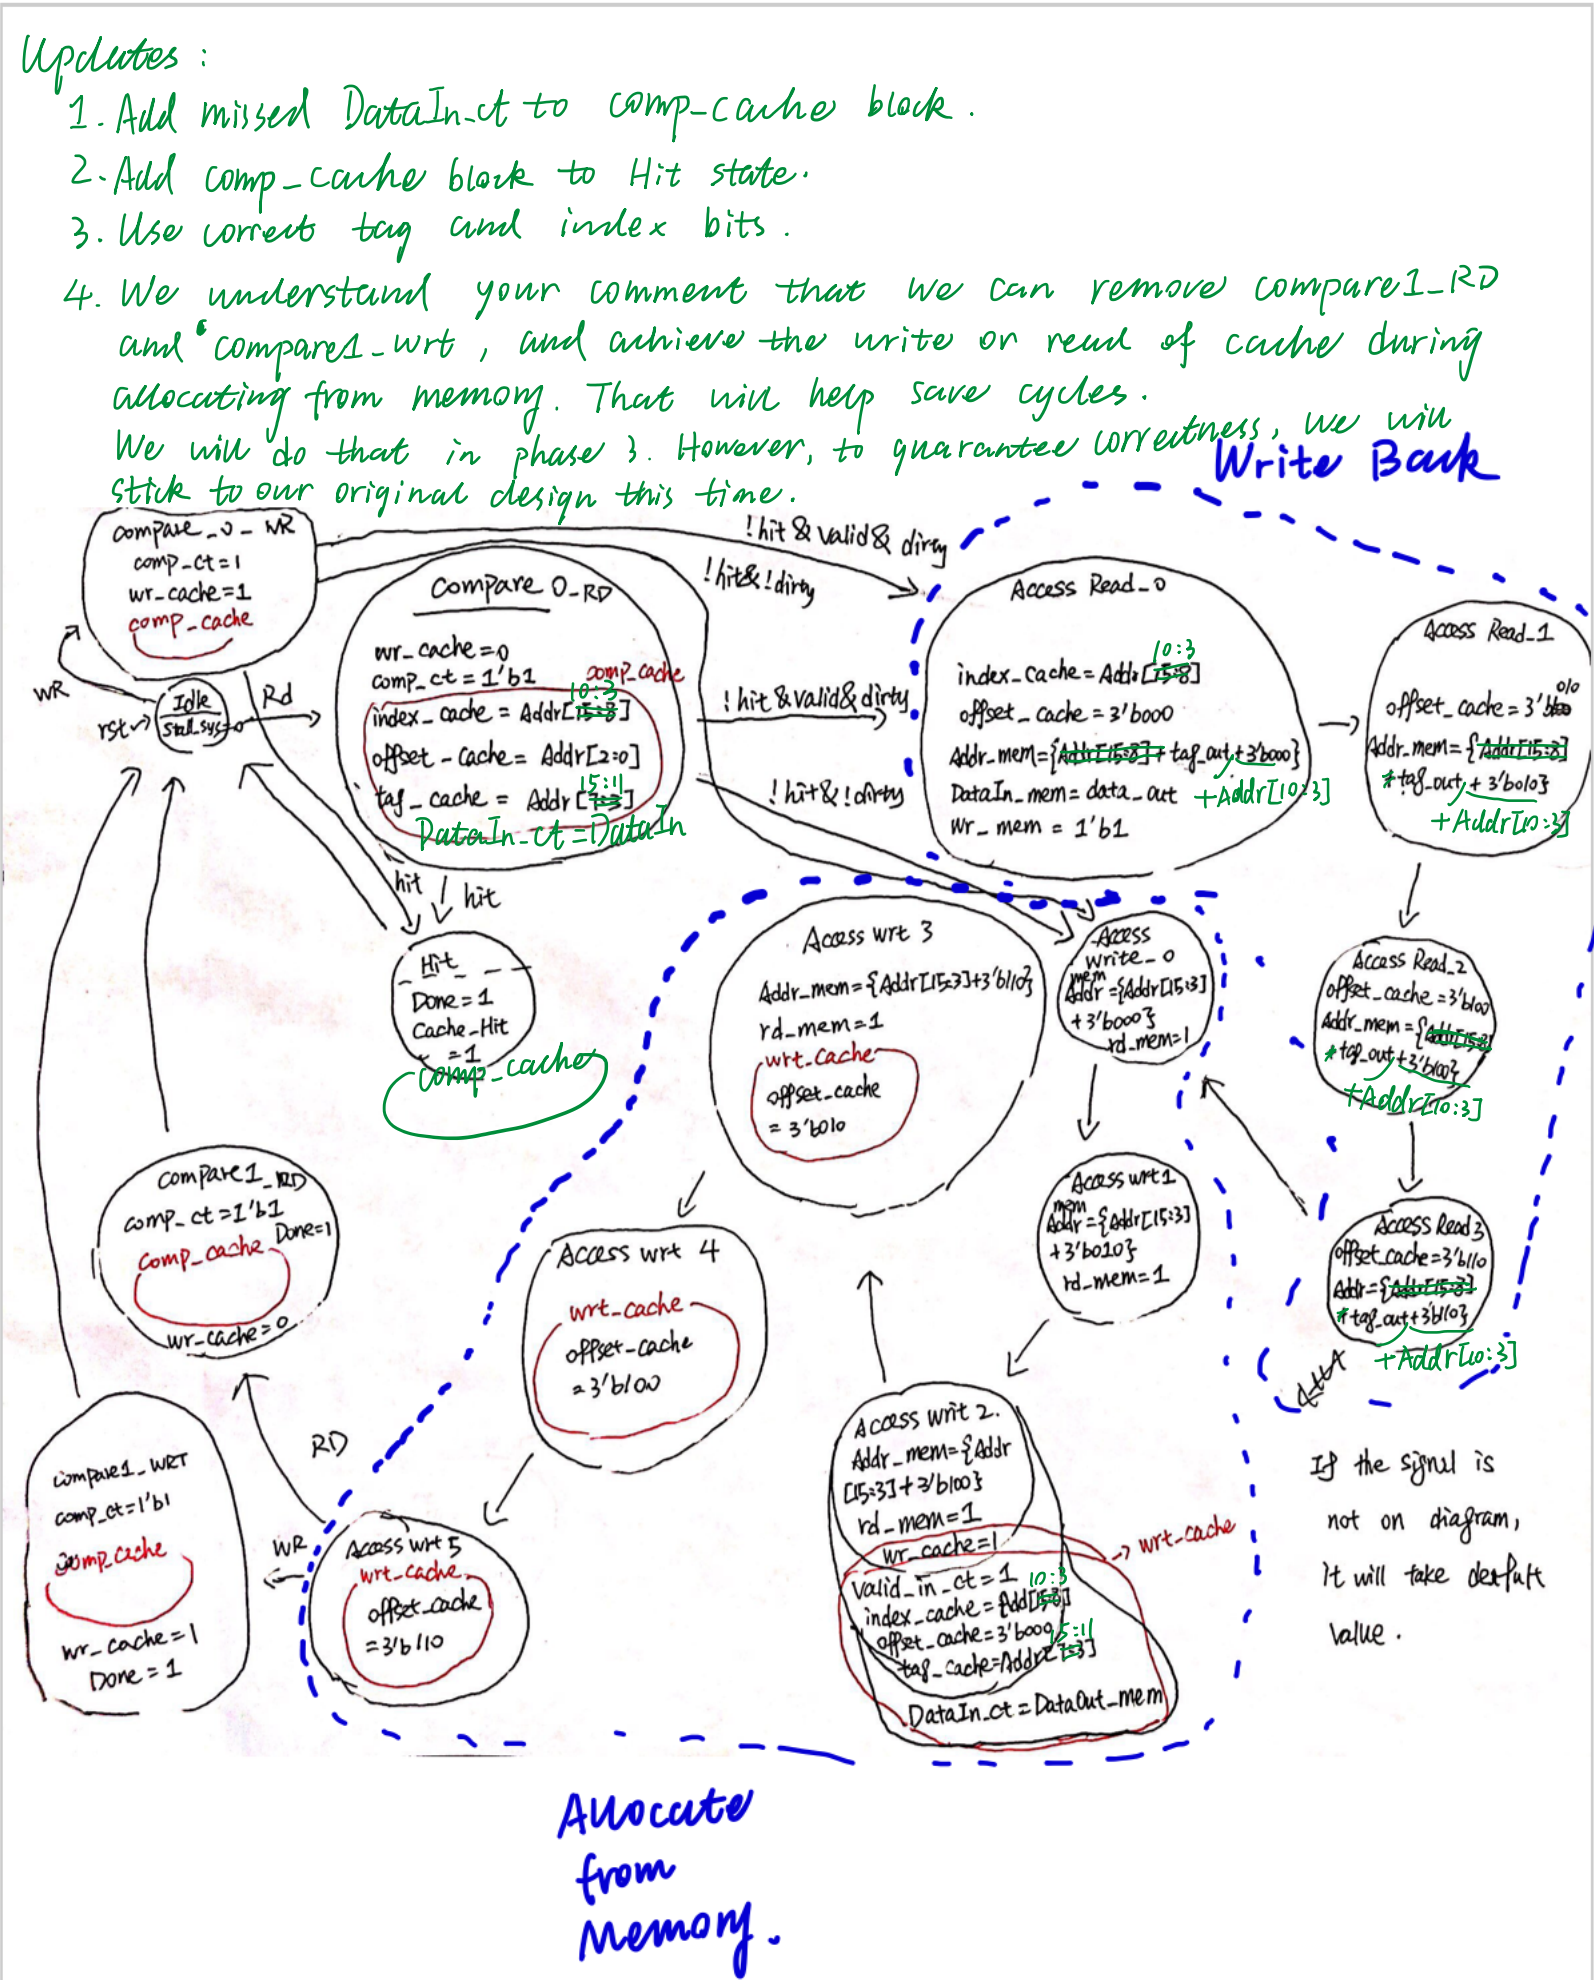 Updates :
1. Add missed DataIn_ct to comp_cache block.
2. Add comp_cache block to Hit state.
3. Use correct tag and index bits.
4. We understand your comment that we can remove compare1_RD
and compare1_wrt, and achieve the write or read of cache during
allocating from memory. That will help save cycles.
We will do that in phase 3. However, to guarantee correctness, we will
stick to our original design this time.
Write Back
compare_0_WR
comp_ct=1
wr_cache=1
comp_cache
WR
rst
Idle
Stall_sys=0
Rd
Compare 0_RD
wr_cache=0
comp_ct = 1'b1
comp_cache
10:3
index_cache = Addr[15:8]
offset_cache = Addr[2:0]
15:11
tag_cache = Addr[7:3]
DataIn_ct = DataIn
!hit & valid & dirty
!hit & !dirty
!hit & valid & dirty
!hit & !dirty
hit
hit
Hit
Done = 1
Cache_Hit
= 1
comp_cache
Access Read_0
10:3
index_cache = Addr[15:8]
offset_cache = 3'b000
Addr_mem={Addr[15:8]+ tag_out+3'b000}
+Addr[10:3]
DataIn_mem = data_out
wr_mem = 1'b1
Access Read_1
010
offset_cache = 3'b
Addr_mem = {Addr[15:8]
+tag_out + 3'b010}
+Addr[10:3]
Access Read_2
offset_cache =3'b100
Addr_mem={Addr[15:8]
+tag_out+3'b100}
+Addr[10:3]
Access Read3
offset_cache=3'b110
Addr={Addr[15:8]
+tag_out+3'b110}
+Addr[10:3]
Access
write_0
mem
Addr={Addr[15:3]
+3'b000}
rd_mem=1
Access wrt1
mem
Addr={Addr[15:3]
+3'b010}
rd_mem=1
Access writ 2.
Addr_mem={Addr
[15:3]+3'b100}
rd_mem=1
wr_cache=1
wrt_cache
valid_in_ct=1
10:3
index_cache=Add[15:8]
offset_cache=3'b000
15:11
tag_cache=Addr[7:3]
DataIn_ct = DataOut_mem
Access wrt 3
Addr_mem={Addr[15:3]+3'b110}
rd_mem=1
wrt_cache
offset_cache
= 3'b010
Access wrt 4
wrt_cache
offset_cache
=3'b100
Access wrt 5
wrt_cache
offset_cache
=3'b110
RD
WR
compare1_RD
comp_ct=1'b1
Done=1
comp_cache
wr_cache=0
compare1_WRT
comp_ct=1'b1
comp_cache
wr_cache=1
Done = 1
If the signal is
not on diagram,
it will take default
value.
Allocate
from
Memory.